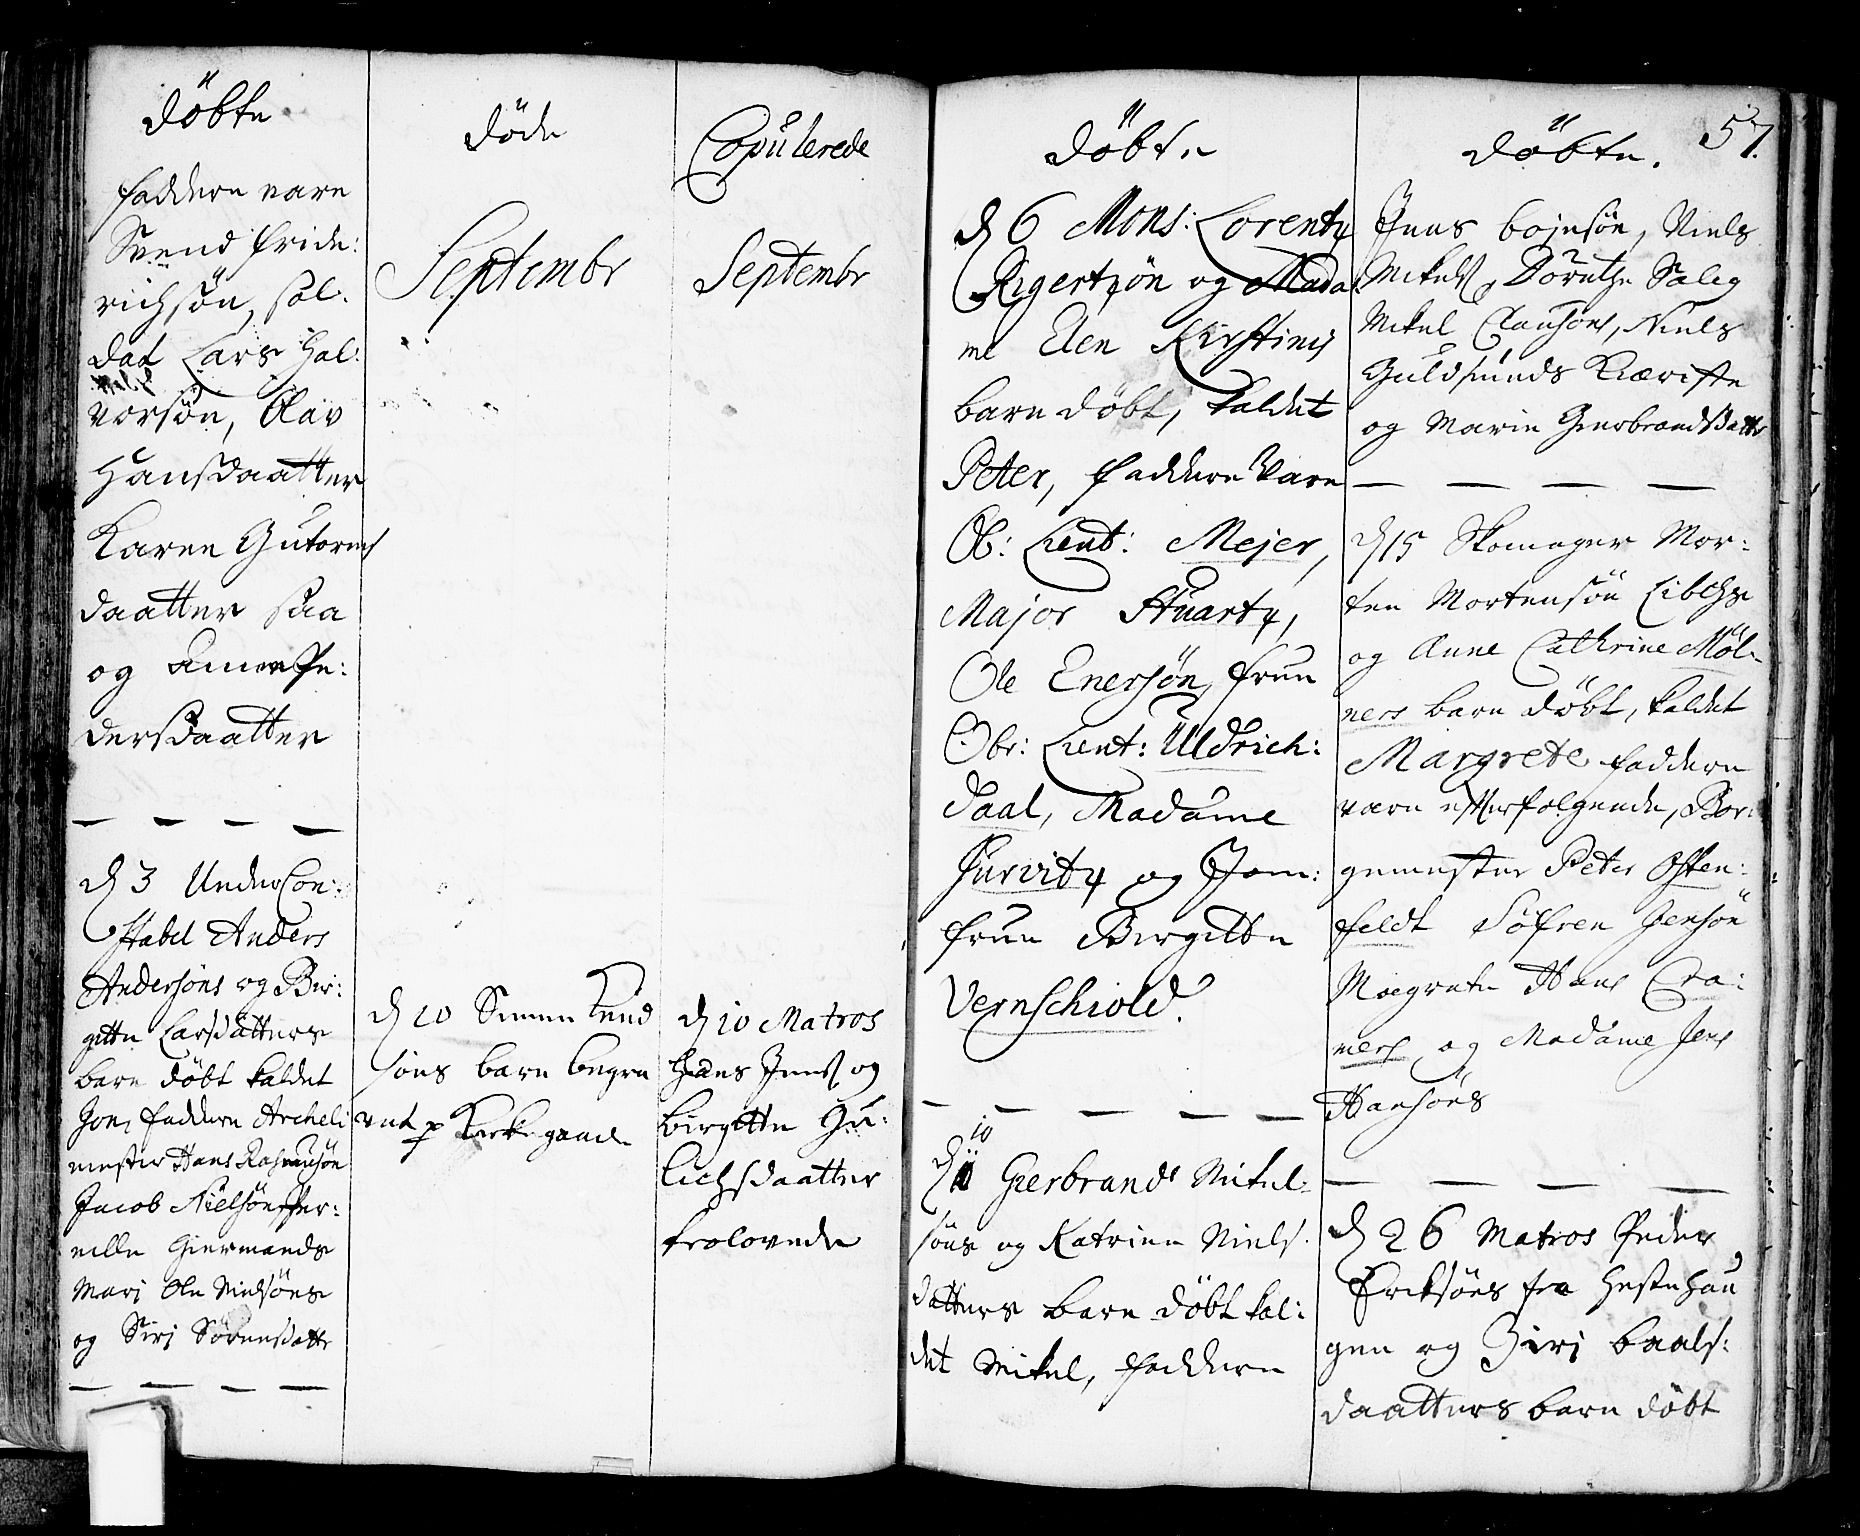 Döbte
faddere vare
Svend Fride:
richsön, sol:
dat Lars Hal:
vorsön, Olav
Hansdaatter
Karen Gutorms
daatter paa
og Anne Pe:
dersdaatter
D 3 Under Con:
stabel Anders
Andersöns og Bir:
gitte Larsdatters
barn döbt kaldet
Jon, faddere Archeli
mester Hans Rasmusön
Jacob Nielsön Per:
nille Giermands
Mari Ole Nielsöns
og Siri Sörensdattr
Döde
Septembr
D 10 Simen Knud
söns barn begra
vet p Kirkegaarde
Copulerede
Septembr
D 10 Matros
Hans Jens og
Birgitte Gu:
lichsdaatter
trolovede
Döbte
D 6 Mons: Lorentz
Rigertzön og Mada
me Elen Kirstines
barn döbt, kaldet
Peter, faddere vare
Ob: Lieut: Mejer,
Major Stuartz,
Ole Enersön, frue
Obr: Lieut: Uldrich:
daal, Madame
Jurvitz og Jom:
frue Birgitte
Vernschiold.
10
D 11 Gierbrands Mikel:
söns og Katrine Niels:
datters barn döbt kal:
det Mikel, faddere
Döbte. 57.
Jens Bojesön, Niels
Mikels, Dorethe Salig
Mikel Clausöns, Niels
Guldsmeds Kieriste
og Marie Gierbrandsdattr
D 15 Skomager Mor:
ten Mortensön Libche
og Anne Cathrine Möl:
ners barn döbt, kaldet
Margrete faddere
vare efterfölgende, Bor:
gemester Peter Osten:
feldt Söfren Jensön
Magrete Hans Cra:
mers og Madame Jens
Hansöns
D 26 Matros Peder
Eriksöns fra Hestehau
gen og Siri Baals:
daatters barn döbt